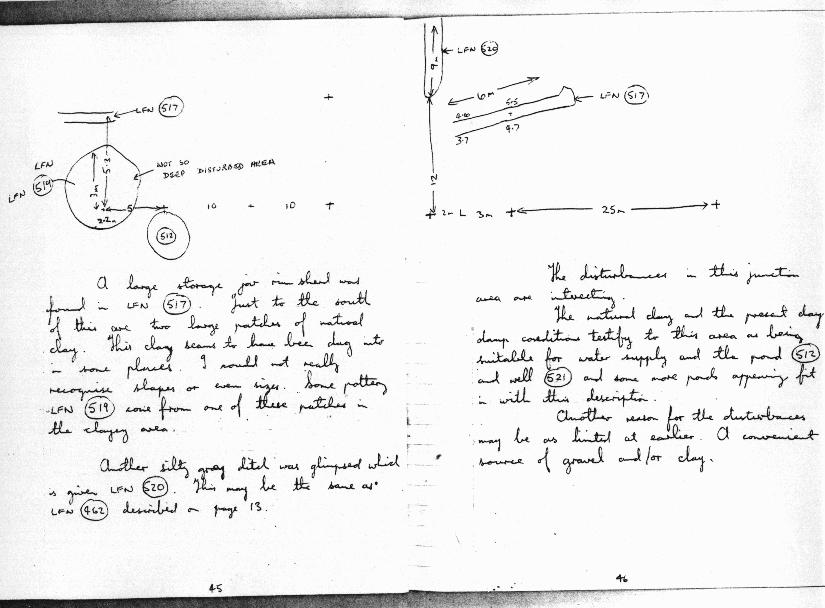 LFN 517
LFN
LFN 519
NOT SO
DEEP DISTURBED AREA
3m
5.3
5
2.2m
10
10
512
A large storage jar rim sherd was
found in LFN 517. Just to the south
of this are two large patches of natural
clay. This clay seems to have been dug into
in some places. I could not really
recognise shapes or even sizes. Some pottery
LFN 519 came from one of these patches in
the clayey area.
Another silty grey ditch was glimpsed which
is given LFN 520. This may be the same as
LFN 462 described on page 13.
45
9m
LFN 520
6m
LFN 517
5.5
4.7
3.7
12
2m
3m
25m
The disturbances in this junction
area are interesting.
The natural clay and the present day
damp conditions testify to this area as being
suitable for water supply and the pond 512
and well 521 and some more ponds appearing fit
in with this description.
Another reason for the disturbances
may be as hinted at earlier. A convenient
source of gravel and/or clay.
46